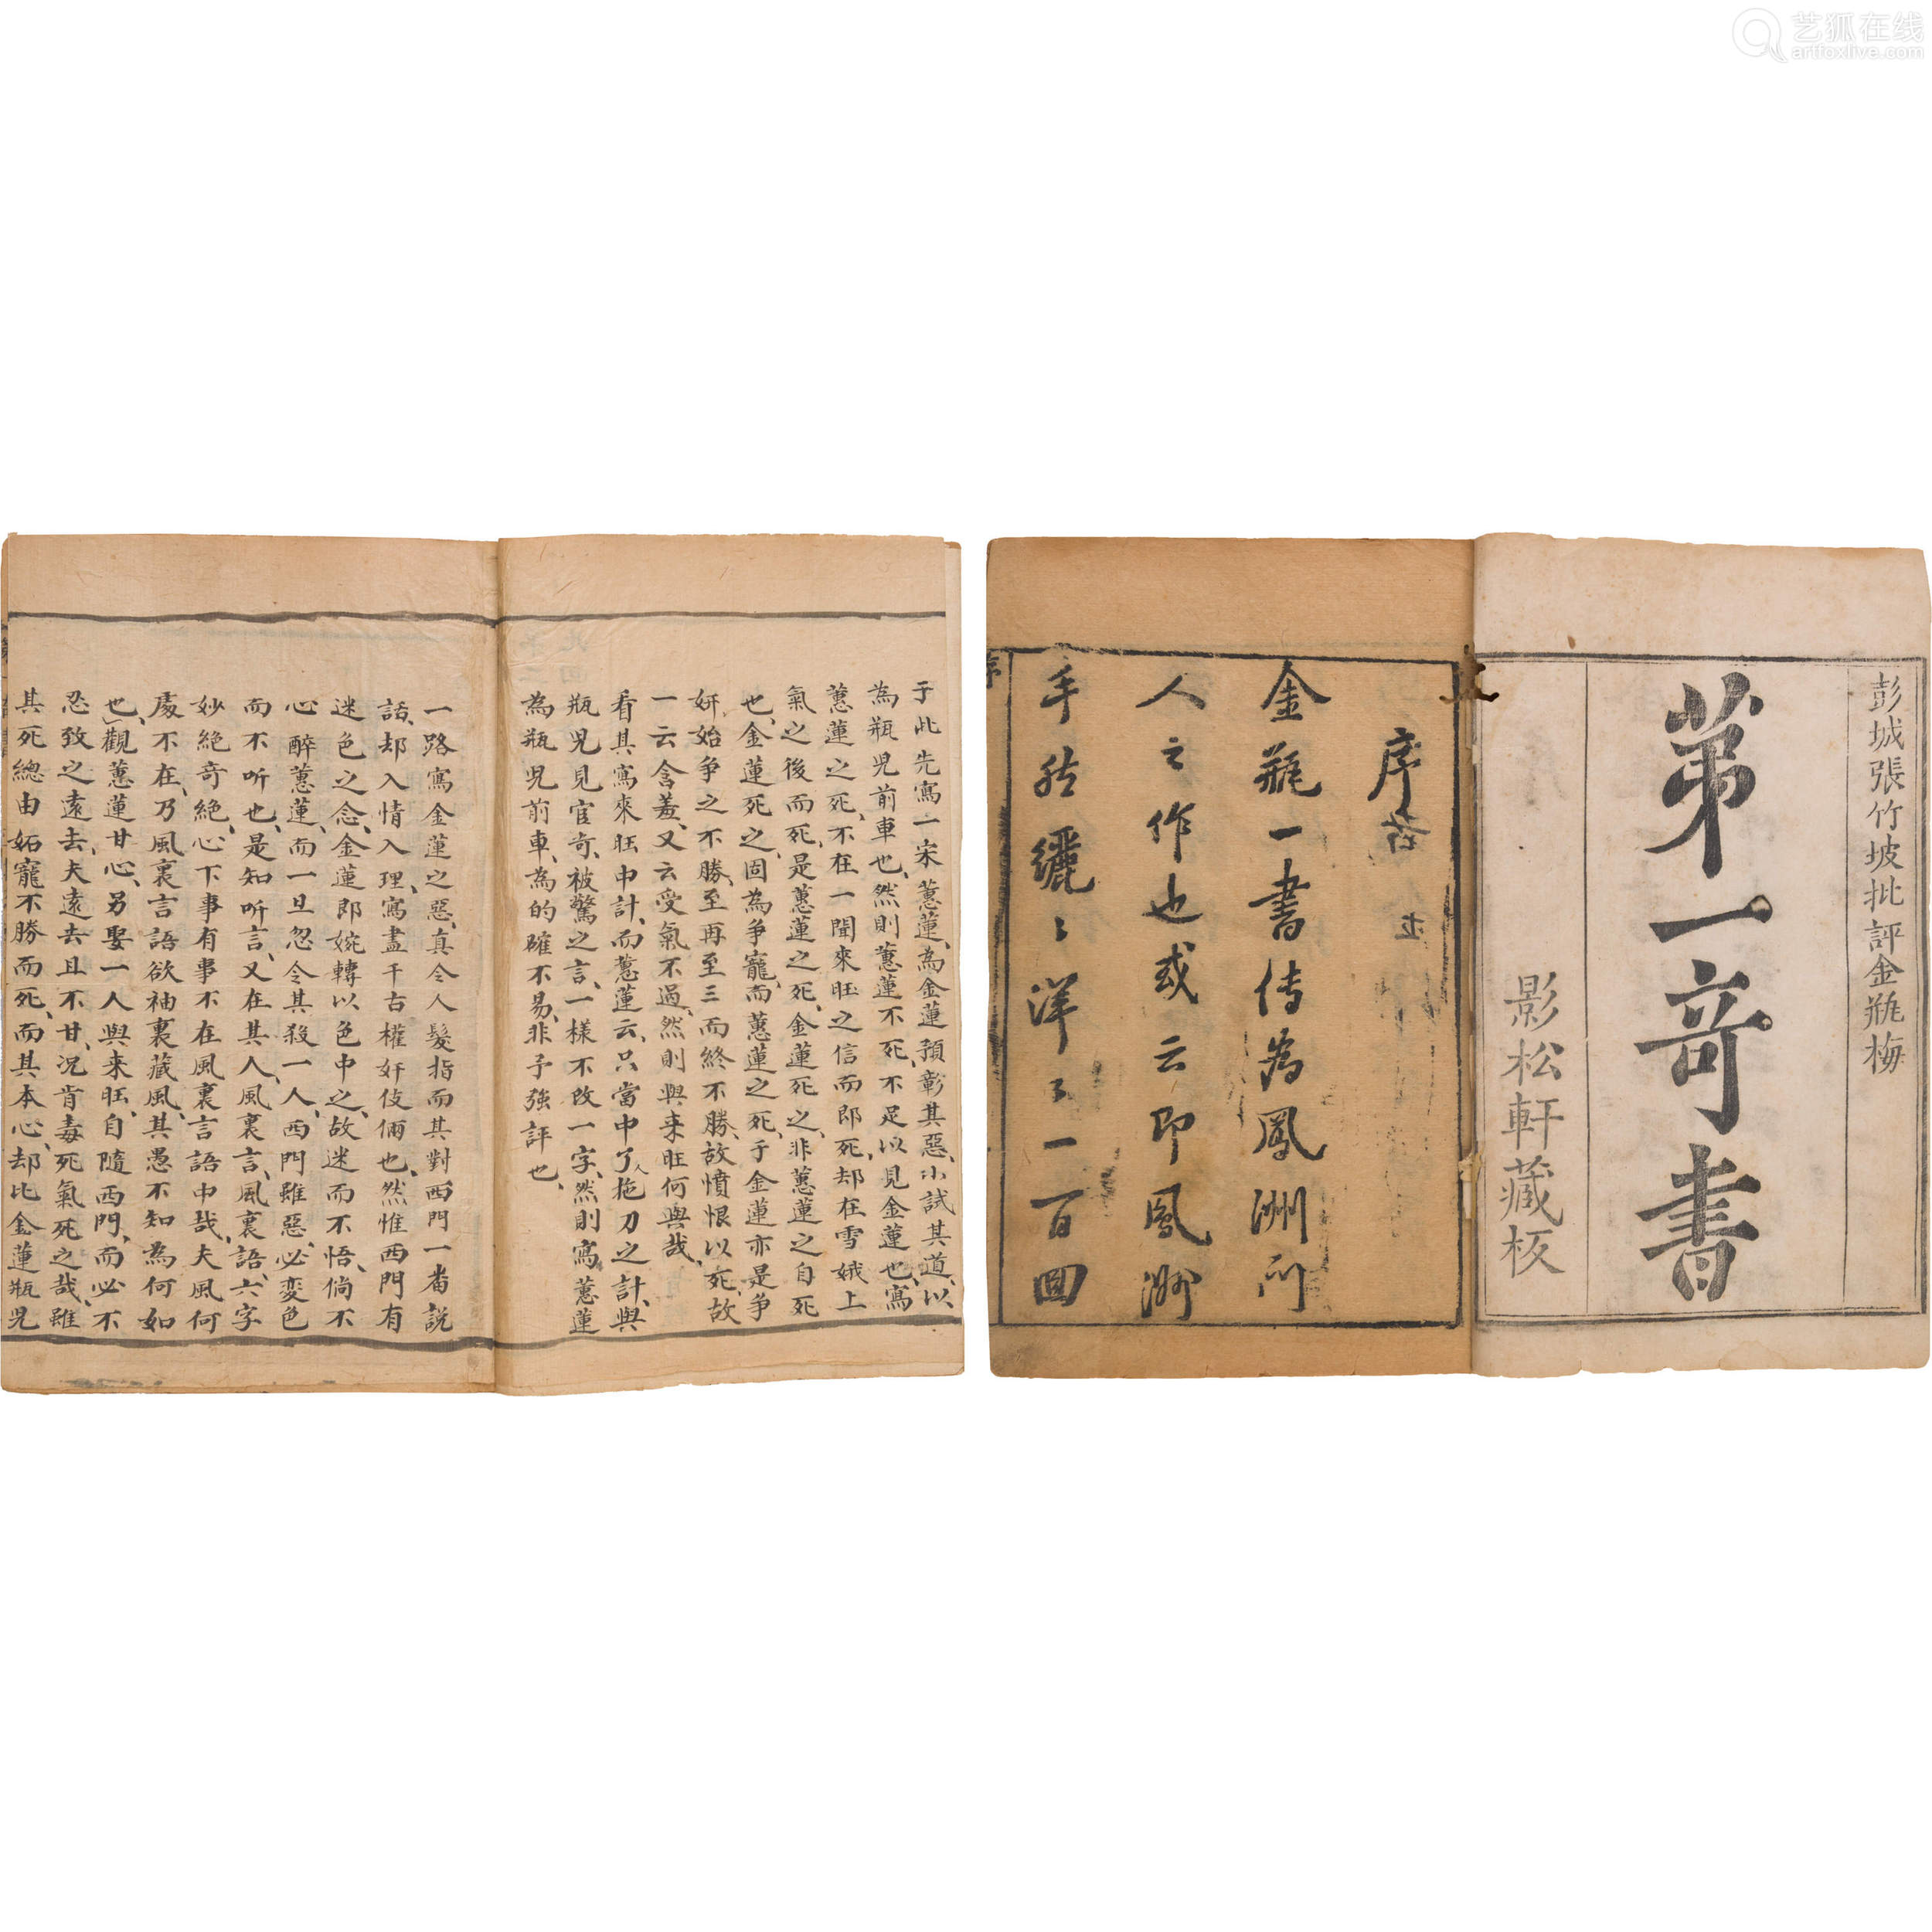 艺狐在线
artfoxlive.com
彭城張竹坡批評金瓶梅
第一奇書
影松軒藏板
序
金瓶一書傳為鳳洲門
人之作也或云即鳳洲
手然纚〻洋〻一百回
于此先寫一宋蕙蓮、為金蓮預彰其惡、小試其道、以
為瓶児前車也、然則蕙蓮不死、不足以見金蓮也、寫
蕙蓮之死、不在一聞來旺之信而即死、却在雪娥上
氣之後而死、是蕙蓮之死、金蓮死之、非蕙蓮之自死
也、金蓮死之、固為争寵、而蕙蓮之死、于金蓮亦是争
妍、始争之不勝、至再至三而終不勝、故憤恨以死、故
一云含羞、又云受氣不過、然則與来旺何與哉、
看其寫來旺中計、而蕙蓮云、只當中了人拖刀之計、與
瓶児見官哥、被驚之言、一樣不改一字、然則寫蕙蓮
為瓶児前車、為的確不易、非予強評也、
一路寫金蓮之惡、真令人髮指而其對西門一畨說
話、却入情入理、寫盡千古權奸伎倆也、然惟西門有
迷色之念、金蓮即婉轉以色中之、故迷而不悟、倘不
心醉蕙蓮、而一旦忽令其殺一人、西門雖惡、必变色
而不听也、是知听言、又在其人、風裏言、風裏語、六字
妙絕奇絕、心下事有事不在風裏言語中哉、夫風何
處不在、乃風裏言語欲袖裏藏風、其愚不知為何如
也、觀蕙蓮甘心、另娶一人與来旺、自隨西門、而必不
忍致之遠去、夫遠去且不甘、况肯毒死氣死之哉、雖
其死總由妬寵不勝而死、而其本心、却比金蓮瓶児